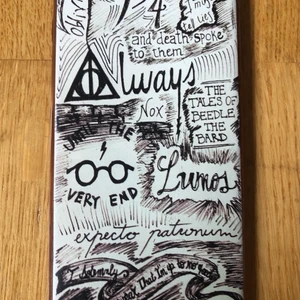 and death spoke
to them
Always
Nox
THE
TALES OF
BEEDLE
THE
BARD
UNTIL THE
VERY END
Lumos
expecto patronum
I solemnly
swear that I'm up to no good